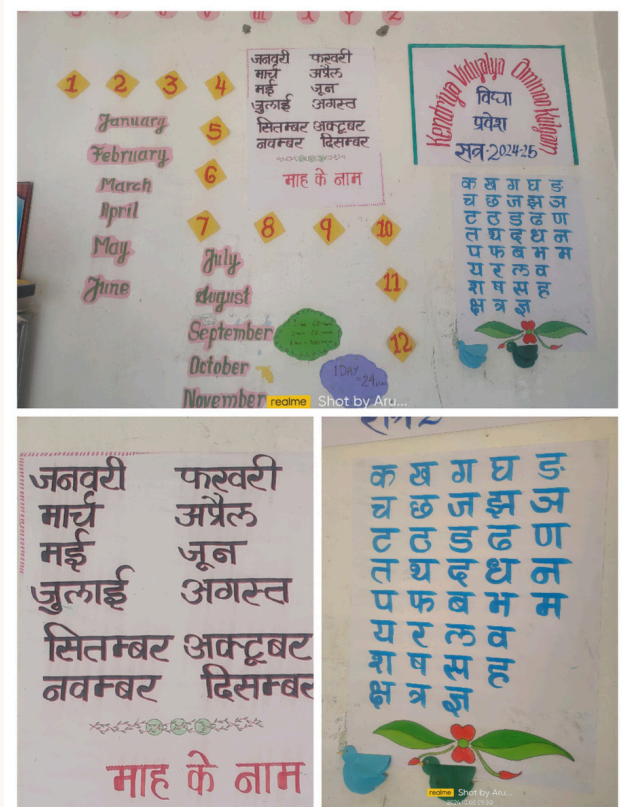 1 2 3 4
5
6
7 8 9 10
11
12
January
February
March
April
May
June
July
August
September
October
November
जनवरी फरवरी
मार्च अप्रैल
मई जून
जुलाई अगस्त
सितम्बर अक्टूबर
नवम्बर दिसम्बर
माह के नाम
Kendriya Vidyalya
विद्या
प्रवेश
सत्र:-2024-25
क ख ग घ ङ
च छ ज झ ञ
ट ठ ड ढ ण
त थ द ध न
प फ ब भ म
य र ल व
श ष स ह
क्ष त्र ज्ञ
1 DAY
=24
realme Shot by Aru...
जनवरी फरवरी
मार्च अप्रैल
मई जून
जुलाई अगस्त
सितम्बर अक्टूबर
नवम्बर दिसम्बर
माह के नाम
क ख ग घ ङ
च छ ज झ ञ
ट ठ ड ढ ण
त थ द ध न
प फ ब भ म
य र ल व
श ष स ह
क्ष त्र ज्ञ
realme Shot by Aru...